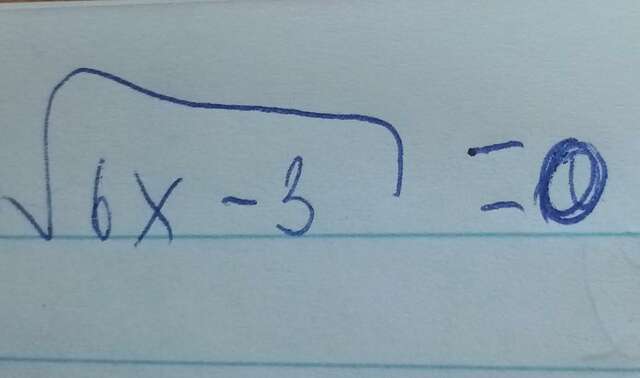 √6x - 3 = 0